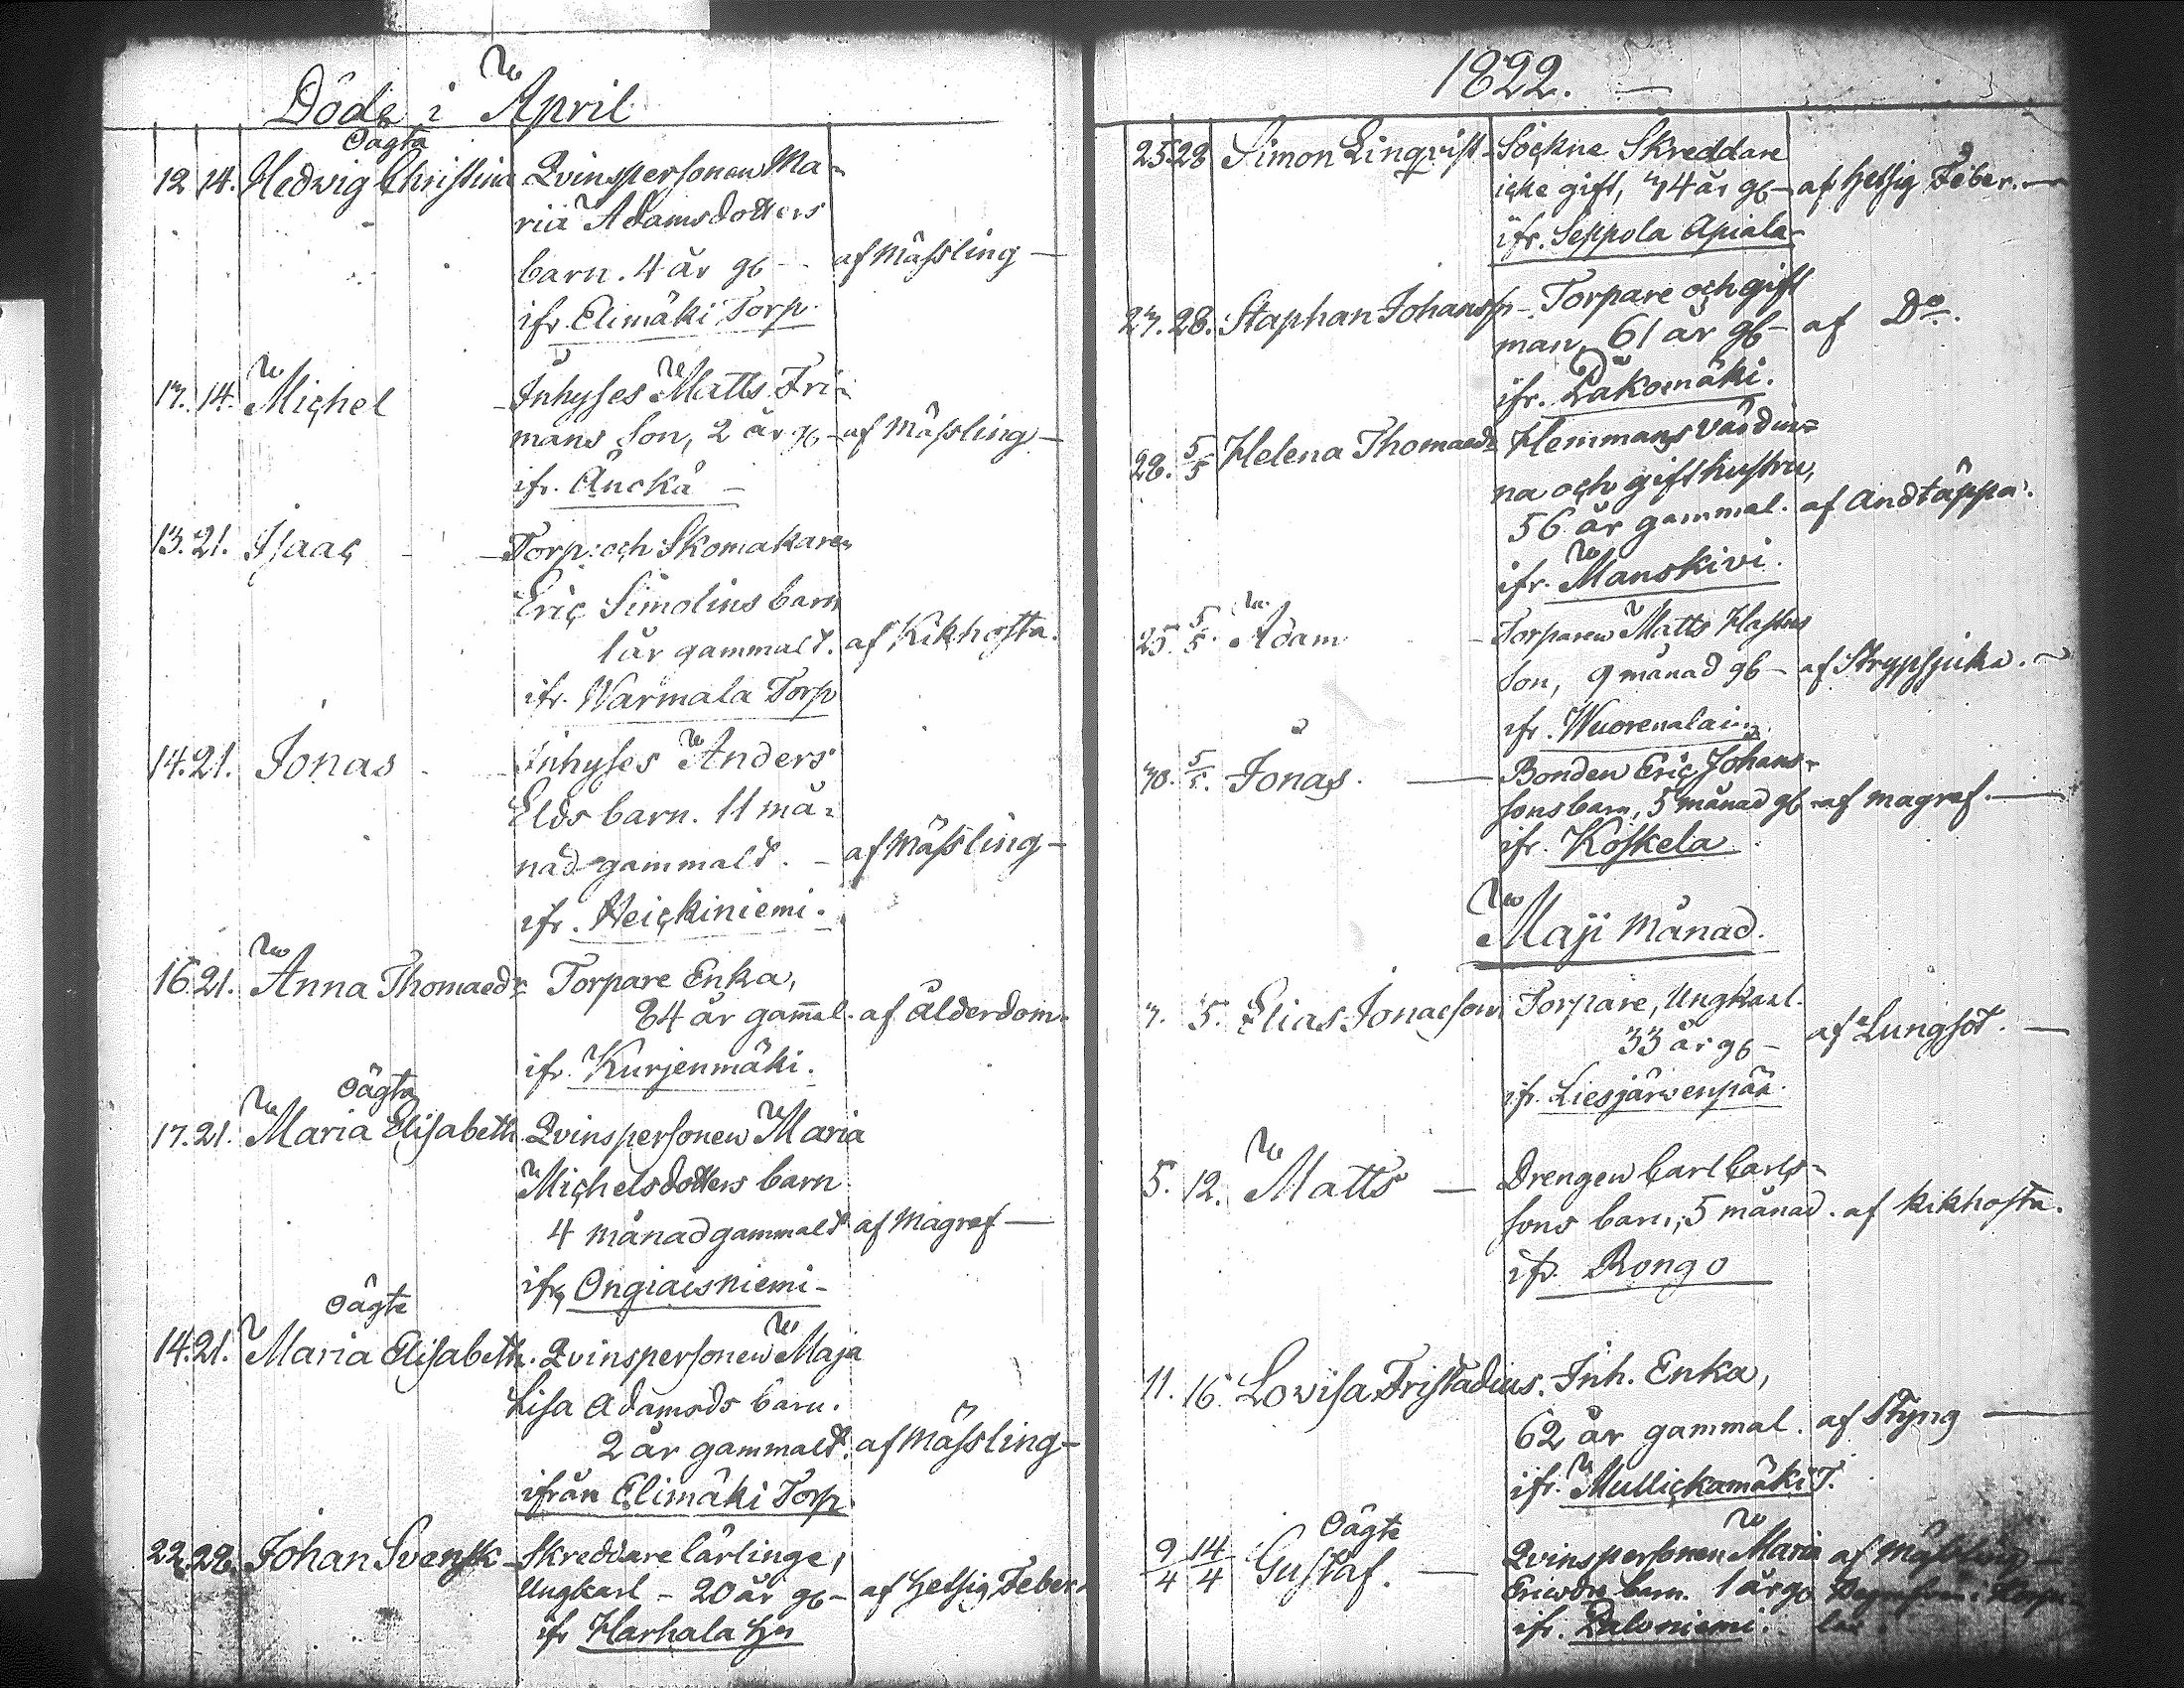 Döde i April
12 14. Oägta
Hedwig Christina Qvinspersonen Ma-
ria Adamsdotters
barn. 4 år gl — af Mässling —
ifr. Elimäki Torp.
17. 14. Michel — Inhyses Matts Fri-
mans Son, 2 år gl — af Mässling —
ifr. Ancka —
13. 21. Isaac — Torp: och Skomakaren
Eric Simolins barn
1 år gammalt. af Kikhosta.
ifr. Warmala Torp
14. 21. Jonas — Inhyses Anders
Elds barn. 11 må-
nad gammalt. — af Mässling —
ifr. Heickiniemi.
16 21. Anna Thomaedr Torpare Enka,
84 år gammal. af Ålderdom.
ifr. Kurjenmäki.
Oägta
17. 21. Maria Elisabeth. Qvinspersonen Maria
Michelsdotters barn
4 månad gammalt af Magref —
ifr. Ongiaisniemi —
Oägte
14. 21. Maria Elisabeth. Qvinspersonen Maja
Lisa Adamsds barn.
2 år gammalt. af Mässling —
ifrån Elimäki Torp.
22. 28. Johan Svensk — Skreddare lärlinge,
Ungkarl — 20 år gl — af Hetsig Feber.
ifr Harhala
1822. —
25. 28 Simon Linqvist — Sockne Skreddare
icke gift, 74 år gl — af Hetsig Feber. —
ifr. Seppola Apiala
27. 28. Staphan Johanss — Torpare och gift
man, 61 år gl — af Do.
ifr. Lakomäki.
28. 5/5 Helena Thomaedr Hemmans Värdin-
na och gift hustru,
56 år gammal. af Andtäppa.
ifr. Manskivi.
25. 5/5. Adam — Torparen Matts
Son, 9 månad gl — af Strypsjuka. —
ifr.
30. 5/5. Jonas. — Bonden Eric Johans-
sons barn, 5 månad gl — af magref. —
ifr. Koskela
Maji Månad.
3. 5. Elias Jonaeson Torpare, Ungkarl.
33 år gl — af Lungsot. —
ifr. Liesjärwenpää.
5. 12. Matts — Drengen Carl Carls-
sons barn, 5 månad. af kikhosta.
ifr. Rongo
11. 16. Lovisa Fristadius. Inh. Enka,
62 år gammal. af Styng —
ifr. Mullickamäki T.
Oägte
9/4 14/4 Gustaf. — Qvinspersonen Maria af Mässling —
barn. 1 år gl
ifr. Paloniemi.